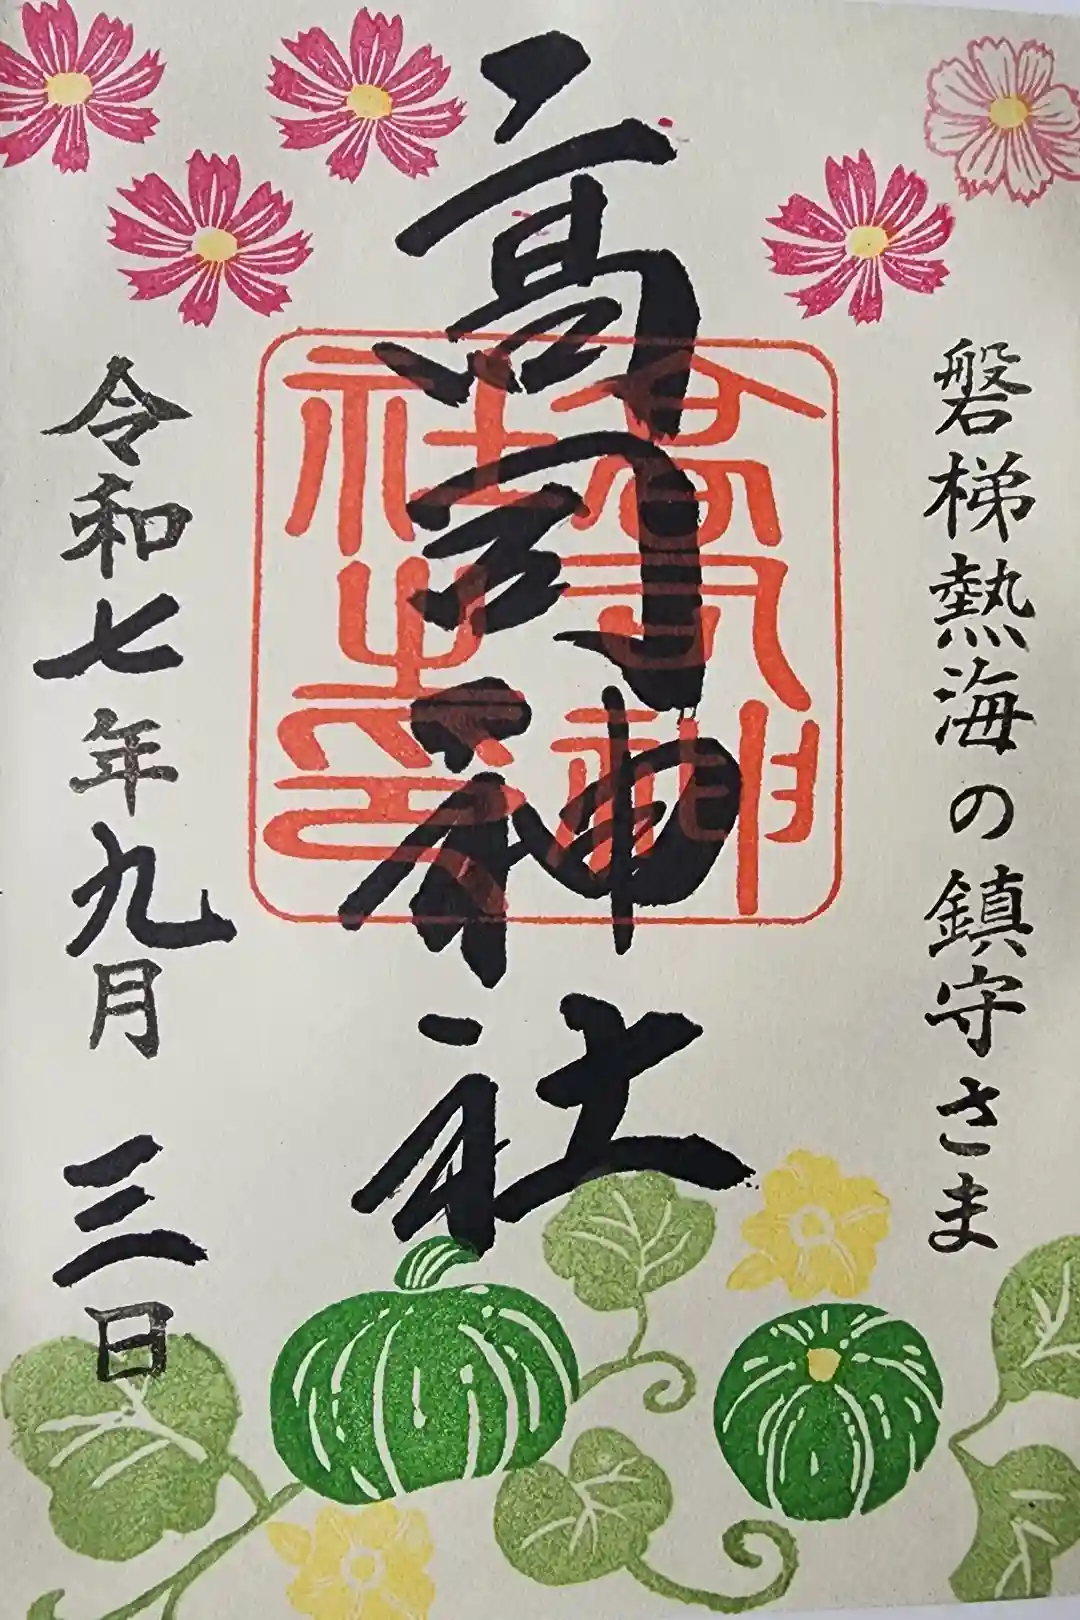 磐梯熱海の鎮守さま
高司神社
高司神
社之印
令和七年九月 三日